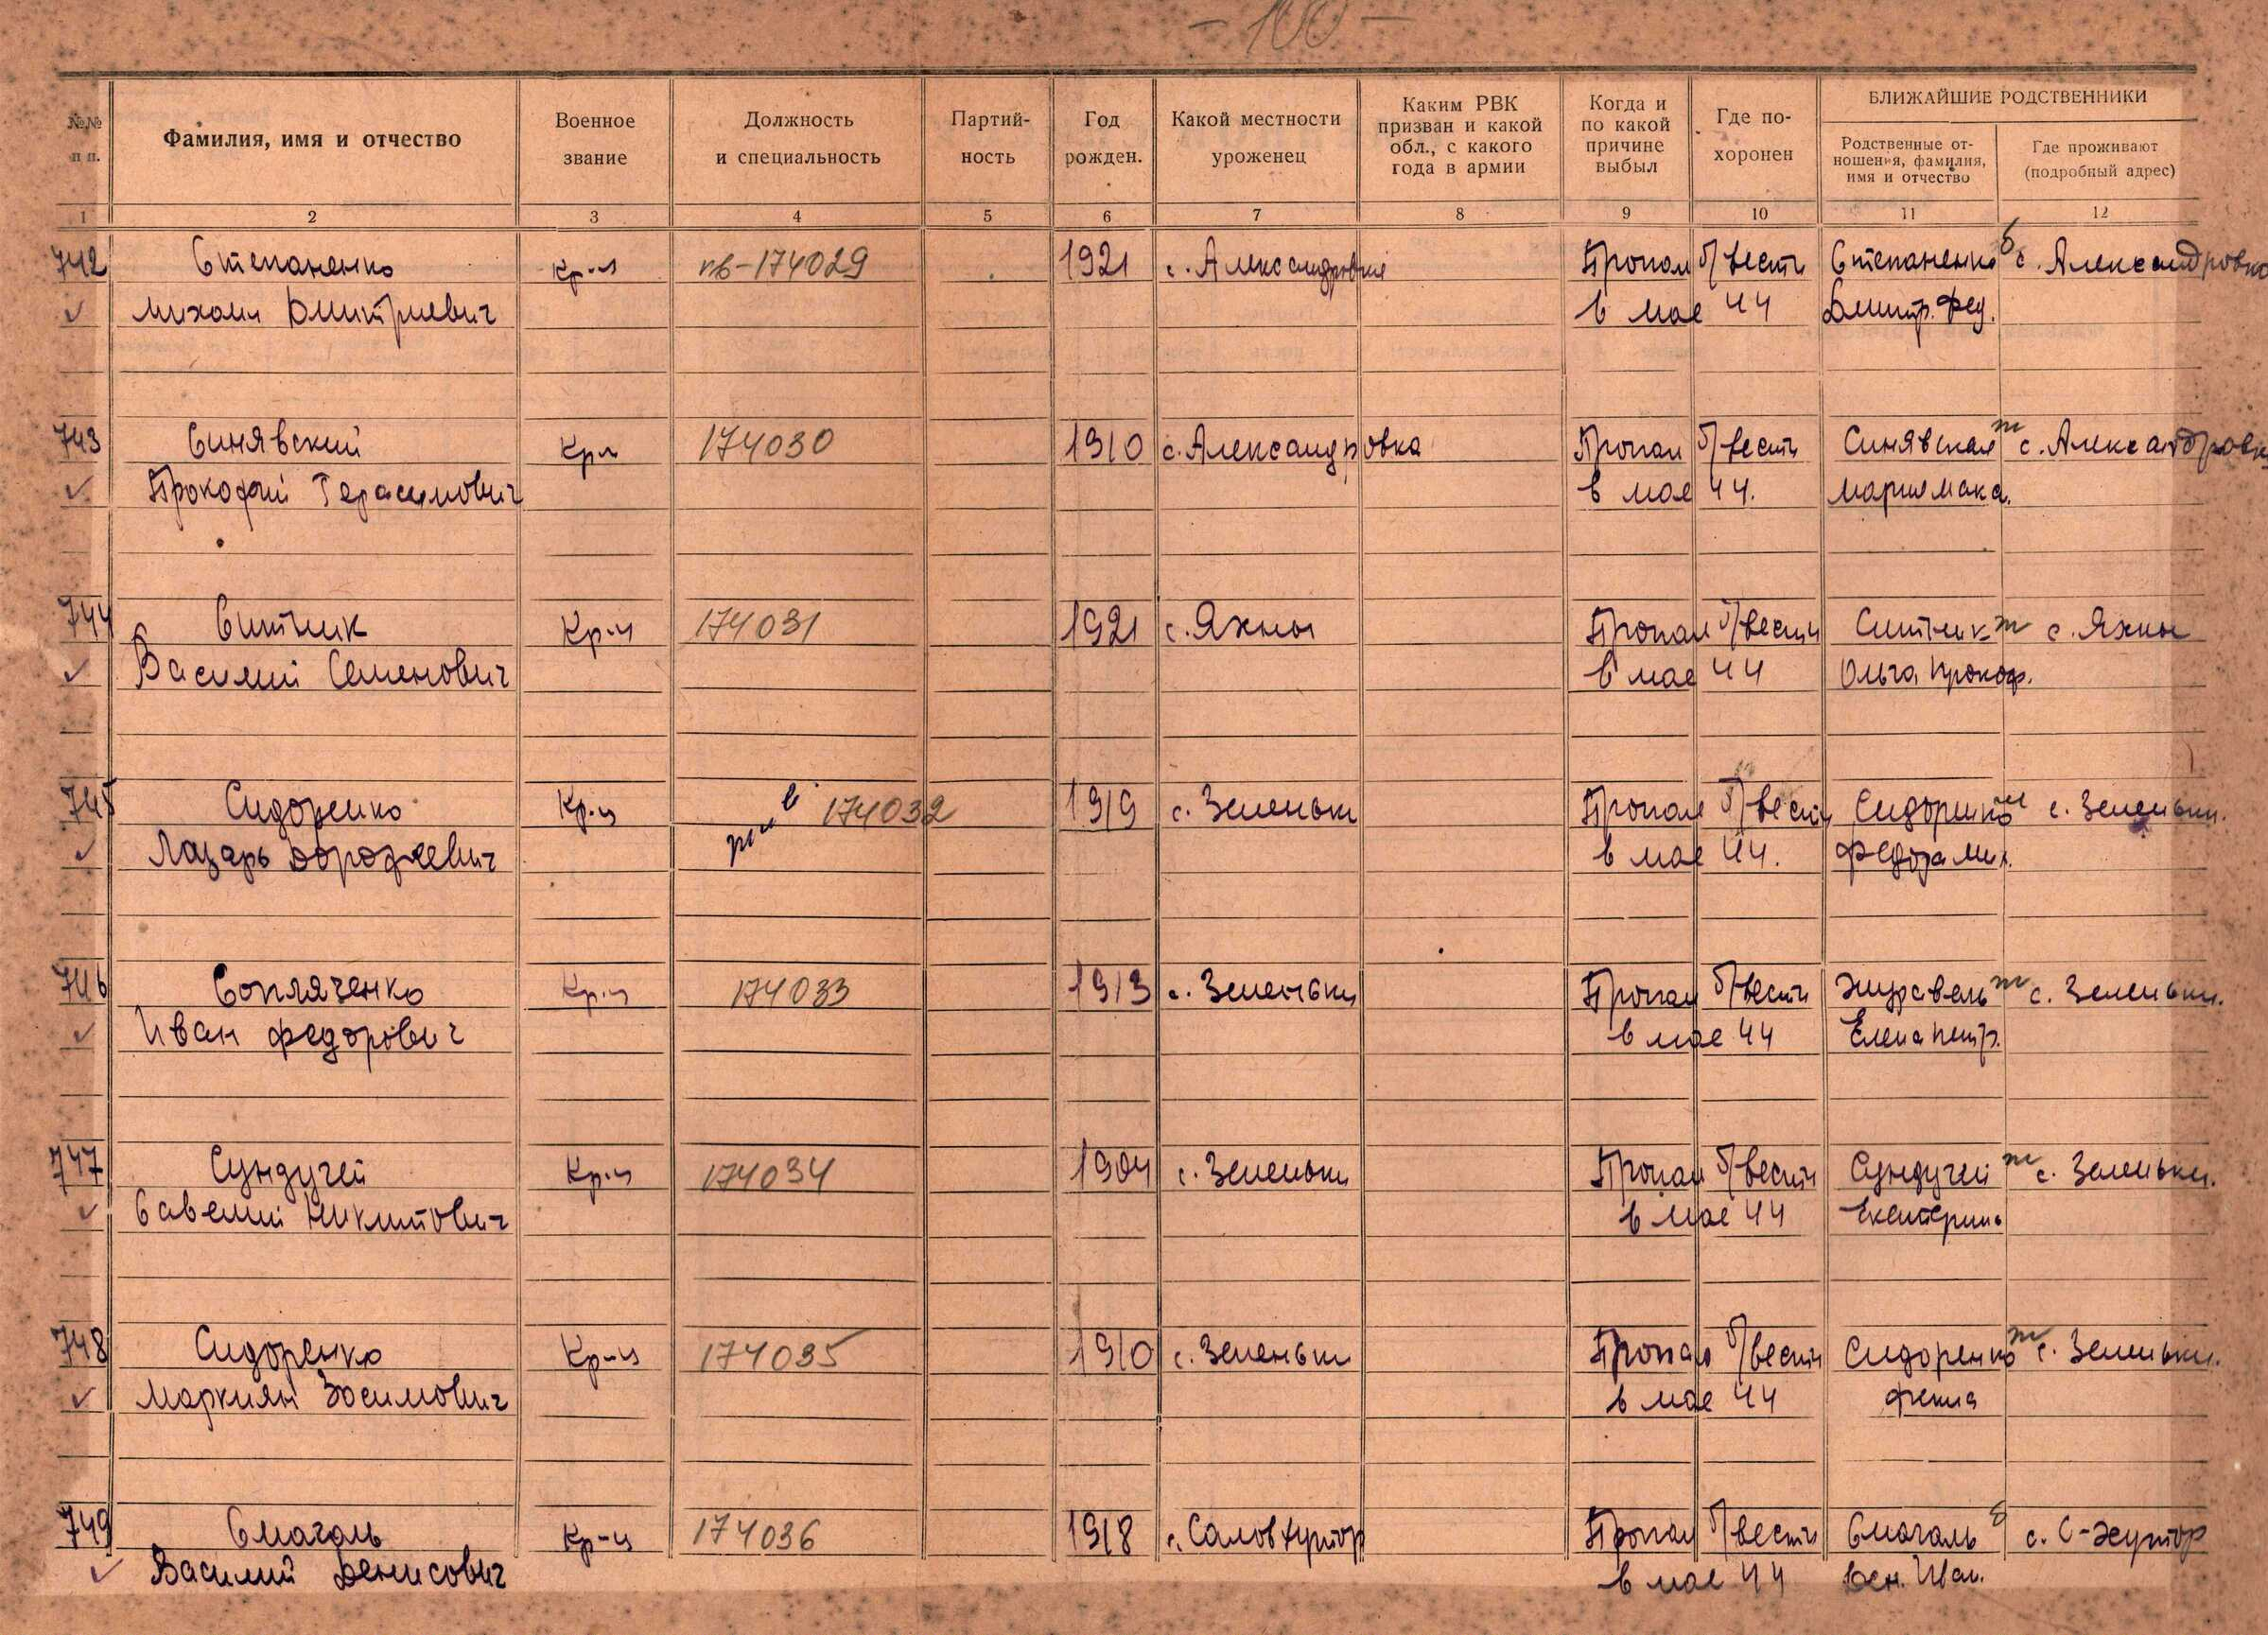 – 100 –
№№ п п.
Фамилия, имя и отчество
Военное звание
Должность и специальность
Партий-ность
Год рожден.
Какой местности уроженец
Каким РВК призван и какой обл., с какого года в армии
Когда и по какой причине выбыл
Где по-хоронен
БЛИЖАЙШИЕ РОДСТВЕННИКИ
Родственные от-ношения, фамилия, имя и отчество
Где проживают (подробный адрес)
1 2 3 4 5 6 7 8 9 10 11 12
742 Степаненко Кр-ц пв-174029 1921 с. Александровка Пропал б/вести Степаненко б с. Александровка
Михаил Дмитриевич в мае 44 Дмитр. Фед.
743 Синявский Кр-ц 174030 1910 с. Александровка Пропал б/вести Синявская ж с. Александровка
Прокофий Герасимович в мае 44. Мария Мака.
744 Ситник Кр-ц 174031 1921 с. Яхны Пропал б/вести Ситник ж с. Яхны
Василий Семенович в мае 44 Ольга Прокоф.
745 Сидоренко Кр-ц жив 174032 1919 с. Зеленьки Пропал б/вести Сидоренко м с. Зеленьки.
Лазарь Дорофеевич в мае 44. Федора Мих.
746 Сопляченко Кр-ц 174033 1913 с. Зеленьки Пропал б/вести Журавель ж с. Зеленьки.
Иван Федорович в мае 44 Елена Петр.
747 Сундучей Кр-ц 174034 1904 с. Зеленьки Пропал б/вести Сундучей ж с. Зеленьки.
Савелий Никитович в мае 44 Екатерина
748 Сидоренко Кр-ц 174035 1910 с. Зеленьки Пропал б/вести Сидоренко ж с. Зеленьки.
Маркиян Зосимович в мае 44 Фекла
749 Смагаль Кр-ц 174036 1918 с. Салов хутор Пропал б/вести Смагаль с. С-Хутор
Василий Денисович в мае 44 Ден. Иван.